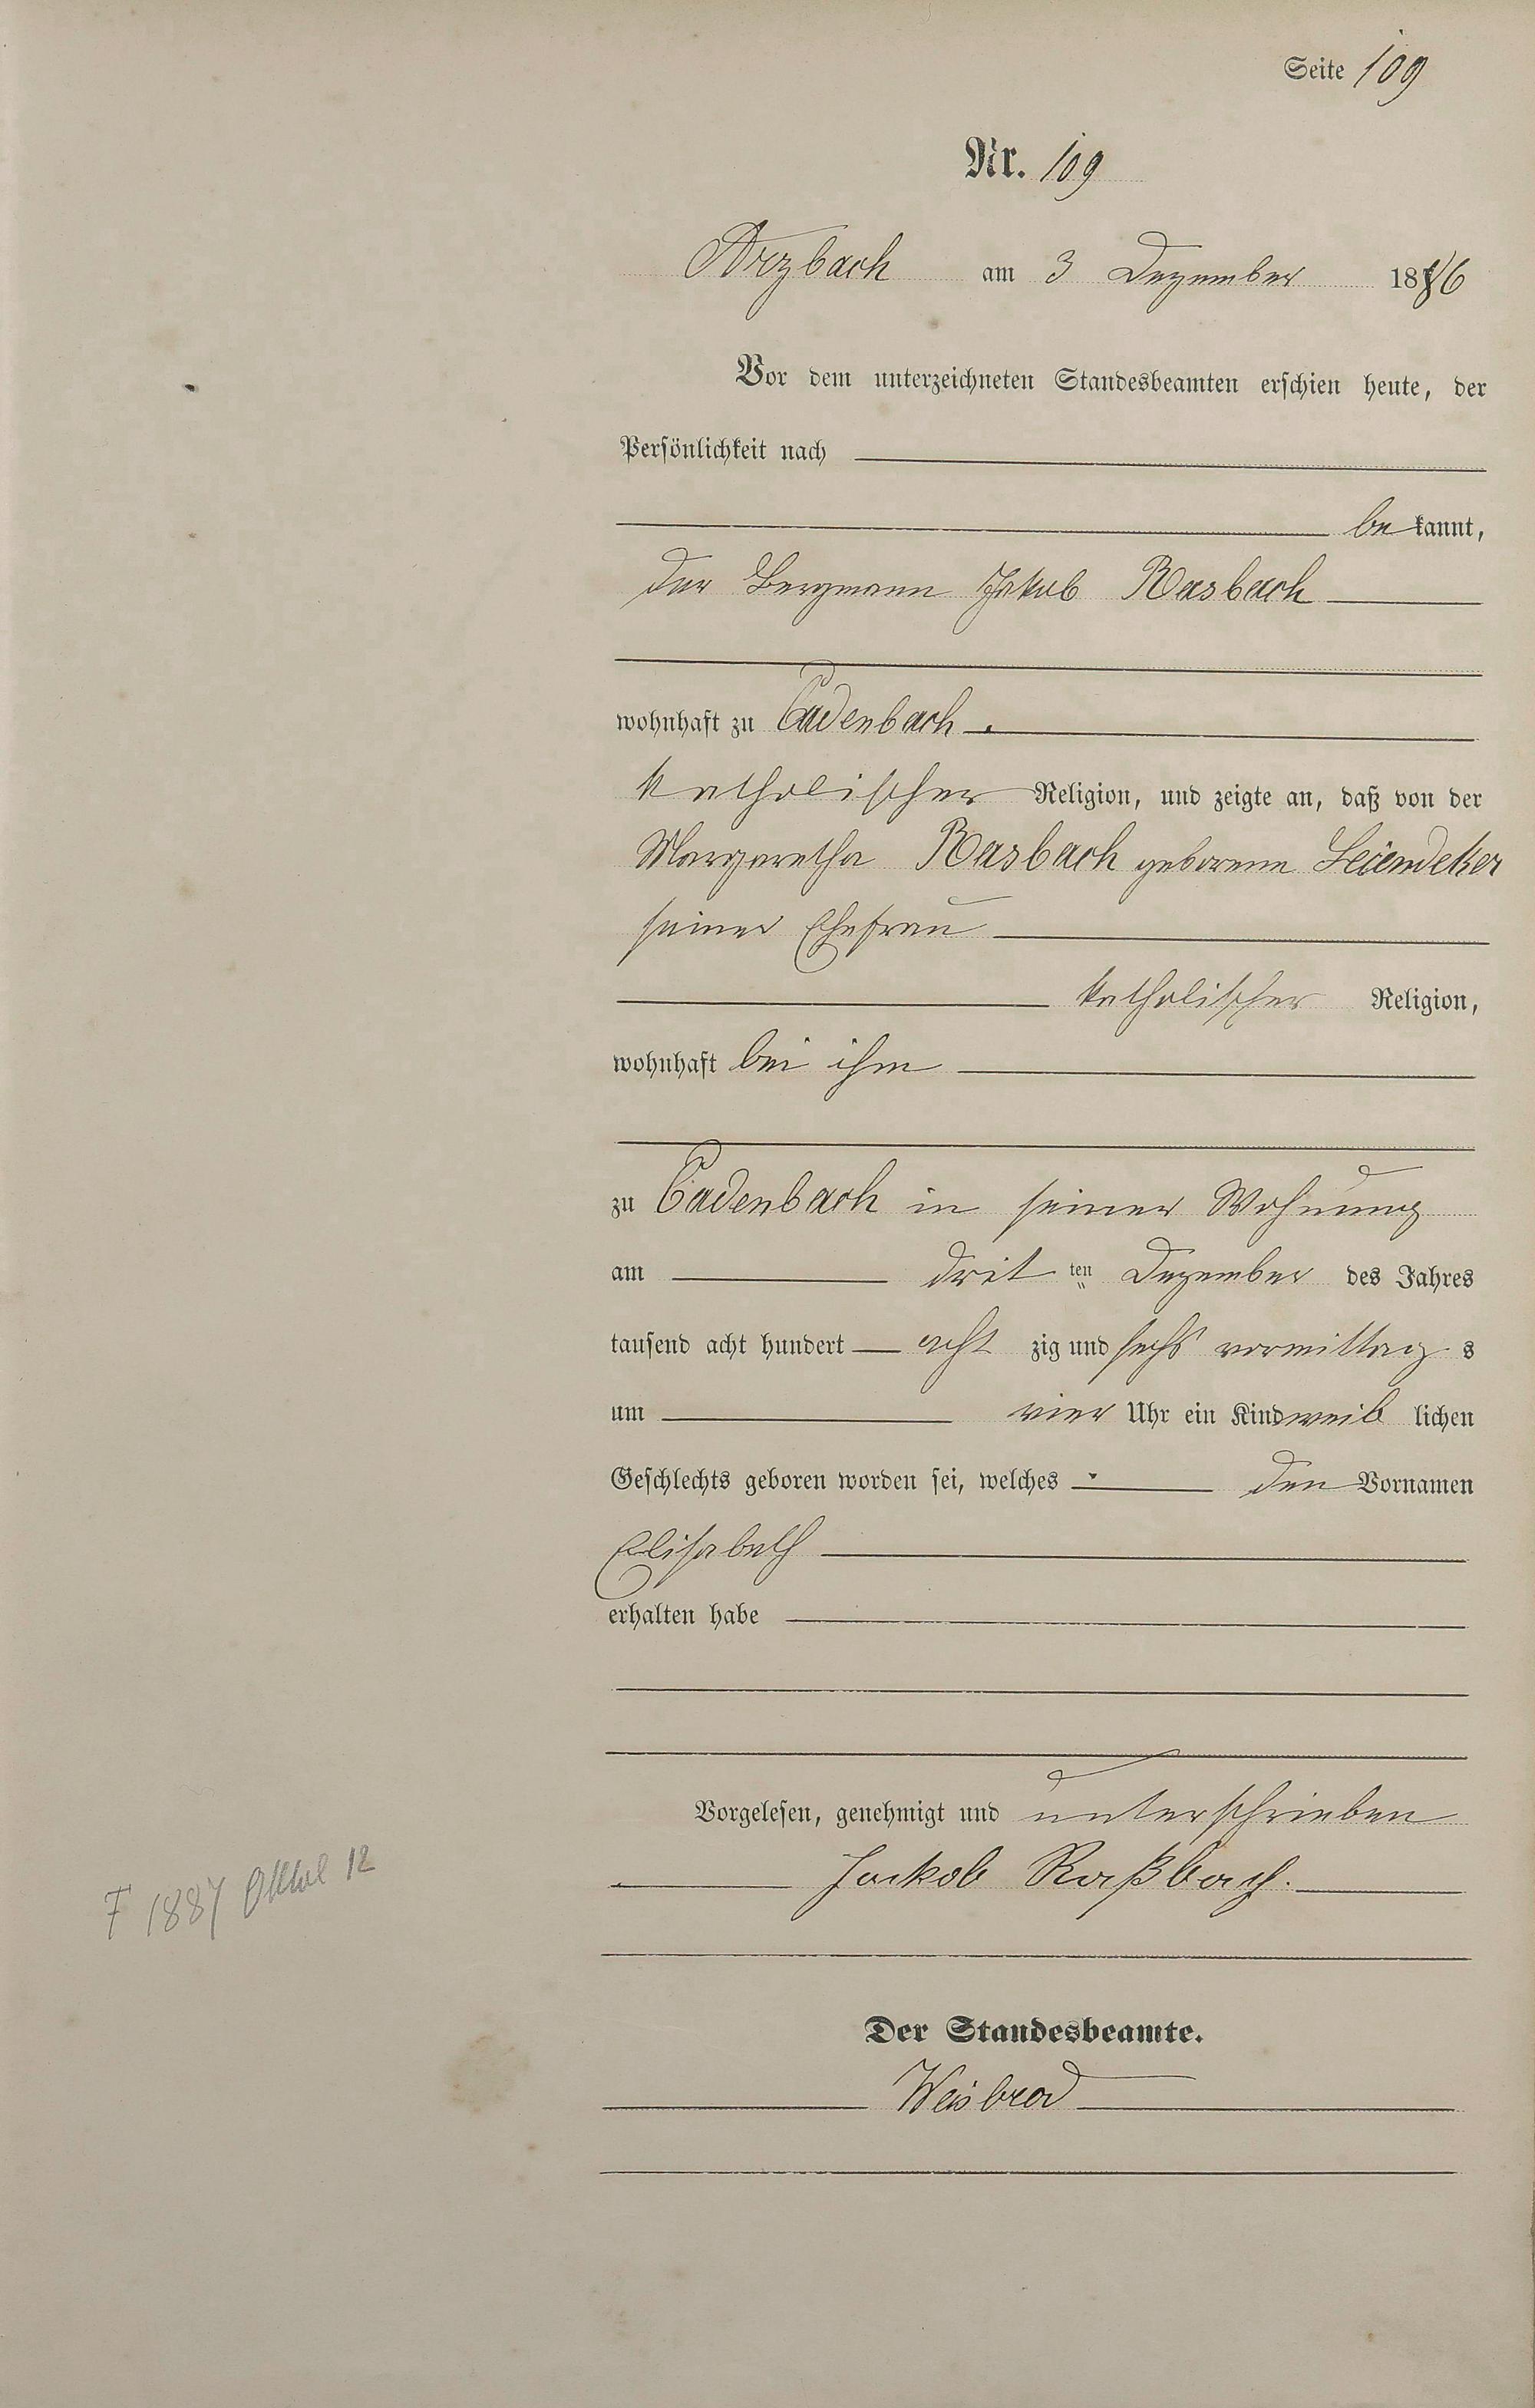 Seite 109
Nr. 109
Arzbach am 3 Dezember 1886
Vor dem unterzeichneten Standesbeamten erschien heute, der
Persönlichkeit nach
be kannt,
der Bergmann Jakob Rasbach
wohnhaft zu Cadenbach
katholischer Religion, und zeigte an, daß von der
Margaretha Rasbach geborene
seiner Ehefrau
katholischer Religion,
wohnhaft bei ihm
zu Cadenbach in seiner Wohnung
am drit ten Dezember des Jahres
tausend acht hundert acht zig und sechs vormittag s
um vier Uhr ein Kind weib lichen
Geschlechts geboren worden sei, welches den Vornamen
Elisabeth
erhalten habe
Vorgelesen, genehmigt und unterschrieben
Jackob Raßbach.
† 1887 12
Der Standesbeamte.
Weisbrod